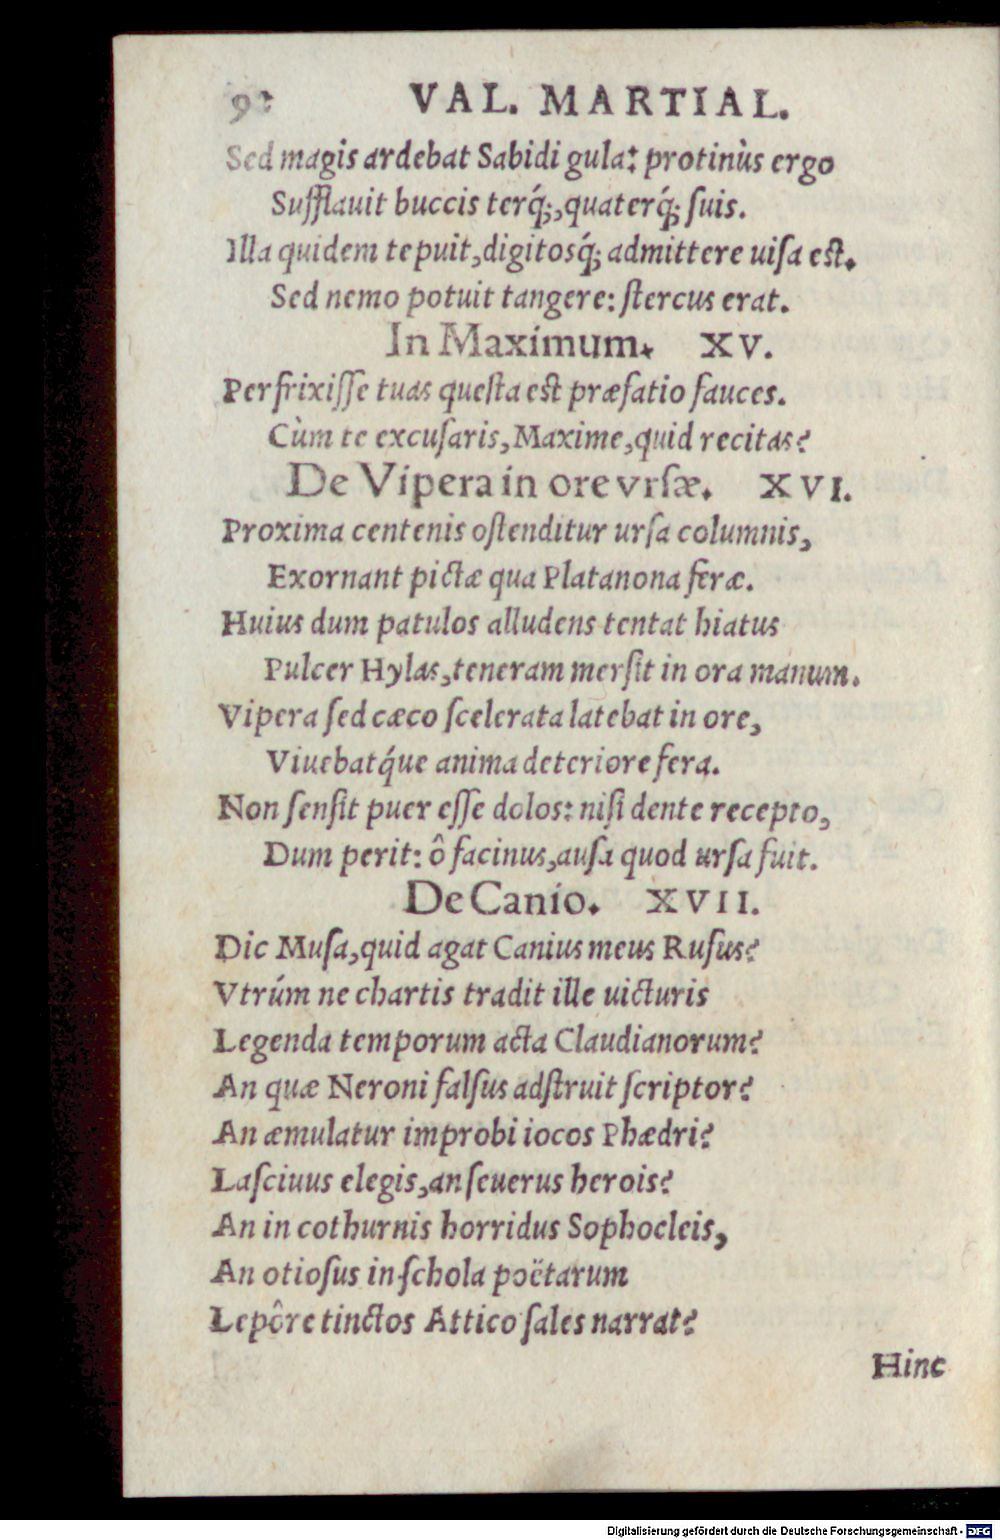 VAL. MARTIAL.
Sed magis ardebat Sabidi gula: protinùs ergo
Sufflauit buccis terq́;, quaterq́; ſuis.
Illa quidem tepuit, digitosq́; admittere uiſa eſt.
Sed nemo potuit tangere: ſtercus erat.
In Maximum. XV.
Perfrixiſſe tuas queſta eſt præfatio fauces.
Cùm te excuſaris, Maxime, quid recitas?
De Vipera in ore vrſæ. XVI.
Proxima centenis oſtenditur urſa columnis,
Exornant pictæ qua Platanona feræ.
Huius dum patulos alludens tentat hiatus
Pulcer Hylas, teneram merſit in ora manum.
Vipera ſed cæco ſcelerata latebat in ore,
Viuebatq́ue anima deteriore fera.
Non ſenſit puer eſſe dolos: niſi dente recepto,
Dum perit: ô facinus, auſa quod urſa fuit.
De Canio. XVII.
Dic Muſa, quid agat Canius meus Rufus?
Vtrúm ne chartis tradit ille uicturis
Legenda temporum acta Claudianorum?
An quæ Neroni falſus adſtruit ſcriptor?
An æmulatur improbi iocos Phædri?
Laſciuus elegis, an ſeuerus herois?
An in cothurnis horridus Sophocleis,
An otioſus in ſchola poëtarum
Lepôre tinctos Attico ſales narrat?
Hinc
Digitalisierung gefördert durch die Deutsche Forschungsgemeinschaft - DFG